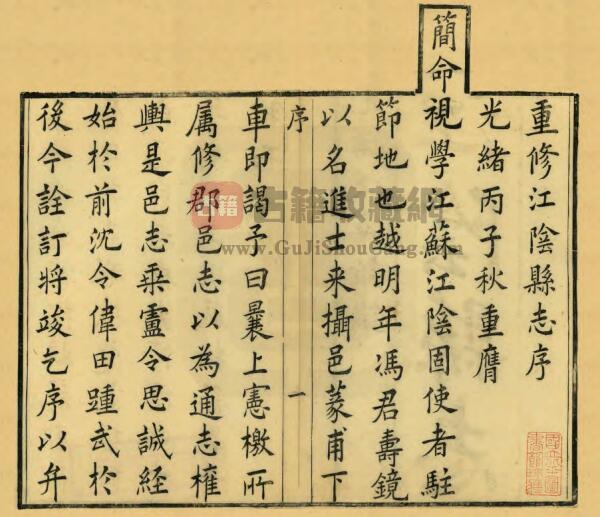 重修江陰縣志序
光緒丙子秋重膺
簡命
視學江蘇江陰固使者駐
節地也越明年馮君壽鏡
以名進士来攝邑篆甫下
序
一
車即謁予曰曩上憲檄所
属修郡邑志以為通志權
輿是邑志乗盧令思誠経
始於前沈令偉田踵武於
後今詮訂將竣乞序以弁
古籍
古籍收藏網
www.GuJiShouCang.com